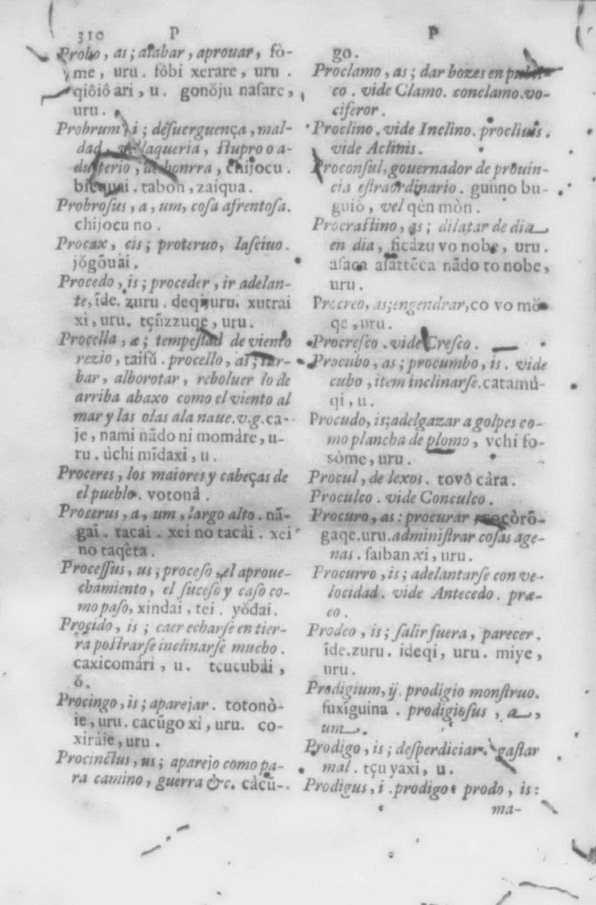 310 P
Probo, as; alabar, aprouar, fò-
me, uru. fòbi xerare, uru.
qiôiô ari, u. gonŏju nasare,
uru.
Probrum, i; desuerguença, mal-
dad, vellaqueria, stupro o a-
dulterio, deshonrra, chijocu.
tabon, zaiqua.
Probrosus, a, um, cosa afrentosa.
chijocu no.
Procax, cis; proteruo, lasciuo.
jŏgŏuâi.
Procedo, is; proceder, ir adelan-
te, īde. zuru. deqi, uru. xutrai
xi, uru. tçũzzuqe, uru.
Procella, æ; tempestad de viento
rezio, taifũ. procello, as; tur-
bar, alborotar, reboluer lo de
arriba abaxo como el viento al
mar y las olas ala naue. v.g. ca-
je, nami nādo ni momâre, u-
ru. ùchi mīdaxi, u.
Proceres, los maiores y cabeças de
el pueblo. votonâ.
Procerus, a, um, largo alto. nā-
gai. tacai. xei no tacâi. xei
no taqêta.
Processus, us; proceso, el aproue-
chamiento, el suceso y caso co-
mo paso, xindai, tei. yŏdai.
Procido, is; caer echarse en tier-
ra postrarse inclinarse mucho.
caxicomári, u. tcucubái,
ŏ.
Procingo, is; aparejar. totonò-
ie, uru. cacũgo xi, uru. co-
xiràie, uru.
Procinctus, us; aparejo como pa-
ra camino, guerra &c. càcũ-
P
go.
Proclamo, as; dar bozes en publi-
co. vide Clamo. conclamo. vo-
ciferor.
Proclino, vide Inclino. procliuis.
vide Aclinis.
Proconsul, gouernador de prouin-
cia estraordinario. guūno bu-
guiŏ, vel qèn mòn.
Procrastino, as; dilatar de dia
en dia, ficàzu vo nobe, uru.
asaca asàttēca nādo to nobe,
uru.
Procreo, as; engendrar, co vo mŏ-
qe, uru.
Procresco. vide Cresco.
Procubo, as; procumbo, is. vide
cubo, item inclinarse. catamú-
qi, u.
Procudo, is; adelgazar a golpes co-
mo plancha de plomo, vchi fo-
sòme, uru.
Procul, de lexos. tovŏ càra.
Proculco. vide Conculco.
Procuro, as: procurar
gaqe. uru. administrar cosas age-
nas. saiban xi, uru.
Procurro, is; adelantarse con ve-
locidad. vide Antecedo. præ-
co.
Prodeo, is; salir fuera, parecer.
īde. zuru. ideqi, uru. miye,
uru.
Prodigium, ij. prodigio monstruo.
fuxiguina. prodigiosus, a,
um.
Prodigo, is; desperdiciar. gastar
mal. tçu yaxi, u.
Prodigus, i. prodigo: prodo, is:
ma-